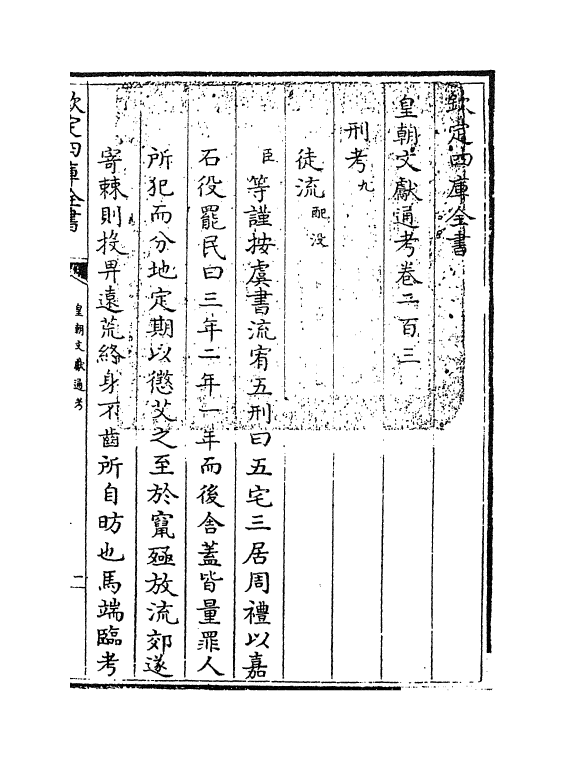 欽定四庫全書
皇朝文獻通考卷二百三
刑考九
徒流配沒
臣等謹按虞書流宥五刑曰五宅三居周禮以嘉
石役罷民曰三年二年一年而後舍蓋皆量罪人
所犯而分地定期以懲艾之至於竄殛放流郊遂
寄棘則投畀遠荒終身不齒所自昉也馬端臨考
欽定四庫全書
皇朝文獻通考